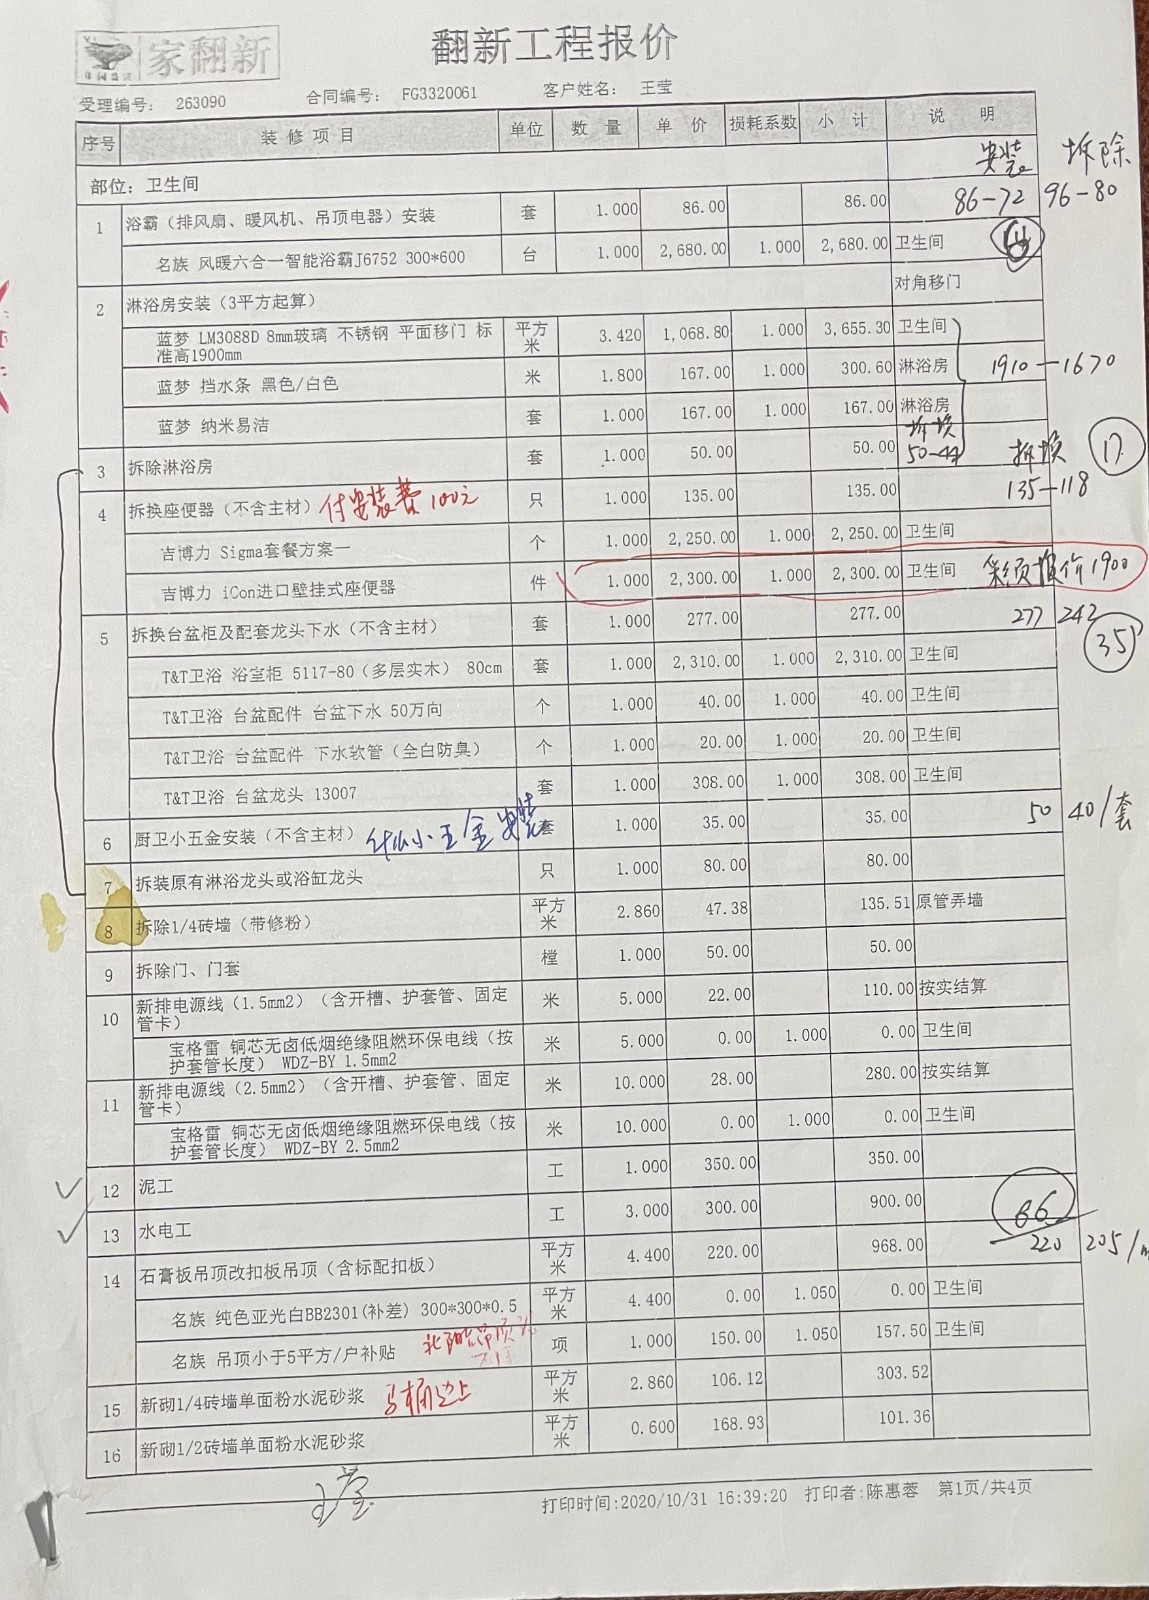 家翻新
翻新工程报价
受理编号： 263090 合同编号： FG3320061 客户姓名： 王莹
序号 装修项目 单位 数量 单价 损耗系数 小计 说明
安装 拆除
部位：卫生间
1 浴霸（排风扇、暖风机、吊顶电器）安装 套 1.000 86.00 86.00 86-72 96-80
名族 风暖六合一智能浴霸J6752 300*600 台 1.000 2,680.00 1.000 2,680.00 卫生间
2 淋浴房安装（3平方起算） 对角移门
蓝梦 LM3088D 8mm玻璃 不锈钢 平面移门 标准高1900mm 平方米 3.420 1,068.80 1.000 3,655.30 卫生间
蓝梦 挡水条 黑色/白色 米 1.800 167.00 1.000 300.60 淋浴房 1910-1670
蓝梦 纳米易洁 套 1.000 167.00 1.000 167.00 淋浴房
3 拆除淋浴房 套 1.000 50.00 50.00 50-44 拆换 17
4 拆换座便器（不含主材） 付安装费100元 只 1.000 135.00 135.00 135-118
吉博力 Sigma套餐方案一 个 1.000 2,250.00 1.000 2,250.00 卫生间
吉博力 iCon进口壁挂式座便器 件 1.000 2,300.00 1.000 2,300.00 卫生间 报价1900
5 拆换台盆柜及配套龙头下水（不含主材） 套 1.000 277.00 277.00 277 242
35
T&T卫浴 浴室柜 5117-80（多层实木） 80cm 套 1.000 2,310.00 1.000 2,310.00 卫生间
T&T卫浴 台盆配件 台盆下水 50万向 个 1.000 40.00 1.000 40.00 卫生间
T&T卫浴 台盆配件 下水软管（全白防臭） 个 1.000 20.00 1.000 20.00 卫生间
T&T卫浴 台盆龙头 13007 套 1.000 308.00 1.000 308.00 卫生间
6 厨卫小五金安装（不含主材） 什么小五金安装 套 1.000 35.00 35.00 50 40/套
7 拆装原有淋浴龙头或浴缸龙头 只 1.000 80.00 80.00
8 拆除1/4砖墙（带修粉） 平方米 2.860 47.38 135.51 原管弄墙
9 拆除门、门套 樘 1.000 50.00 50.00
10 新排电源线（1.5mm2）（含开槽、护套管、固定管卡） 米 5.000 22.00 110.00 按实结算
宝格雷 铜芯无卤低烟绝缘阻燃环保电线（按护套管长度） WDZ-BY 1.5mm2 米 5.000 0.00 1.000 0.00 卫生间
11 新排电源线（2.5mm2）（含开槽、护套管、固定管卡） 米 10.000 28.00 280.00 按实结算
宝格雷 铜芯无卤低烟绝缘阻燃环保电线（按护套管长度） WDZ-BY 2.5mm2 米 10.000 0.00 1.000 0.00 卫生间
12 泥工 工 1.000 350.00 350.00
13 水电工 工 3.000 300.00 900.00 66
14 石膏板吊顶改扣板吊顶（含标配扣板） 平方米 4.400 220.00 968.00 220 205/m
名族 纯色亚光白BB2301(补差) 300*300*0.5 平方米 4.400 0.00 1.050 0.00 卫生间
名族 吊顶小于5平方/户补贴 项 1.000 150.00 1.050 157.50 卫生间
15 新砌1/4砖墙单面粉水泥砂浆 马桶边上 平方米 2.860 106.12 303.52
16 新砌1/2砖墙单面粉水泥砂浆 平方米 0.600 168.93 101.36
王莹
打印时间:2020/10/31 16:39:20 打印者:陈惠蓉 第1页/共4页